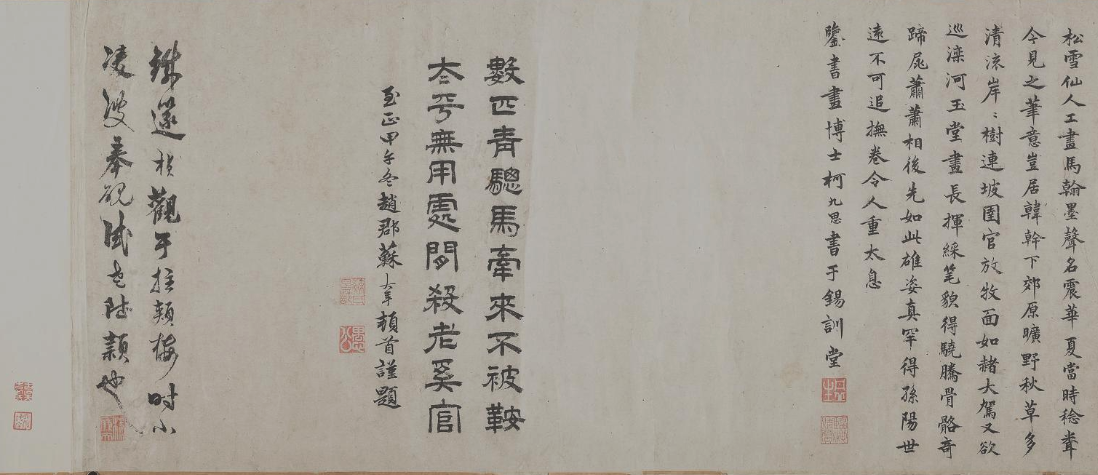 松雪仙人工畫馬翰墨聲名震華夏當時稔
今見之筆意豈居韓幹下郊原曠野秋草多
清流岸〻樹連坡圉官放牧面如赭大駕又欲
巡灤河玉堂晝長揮綵笔貌得驍騰骨骼奇
蹄尾蕭蕭相後先如此雄姿真罕得孫陽世
遠不可追撫卷令人重太息
鑒書畫博士柯九思書于錫訓堂
數匹青驄馬牽來不被鞍
太平無用處閒殺老奚官
至正甲午冬趙郡蘇大年頓首謹題
觀于拄頰樓時小
凌波奉硯